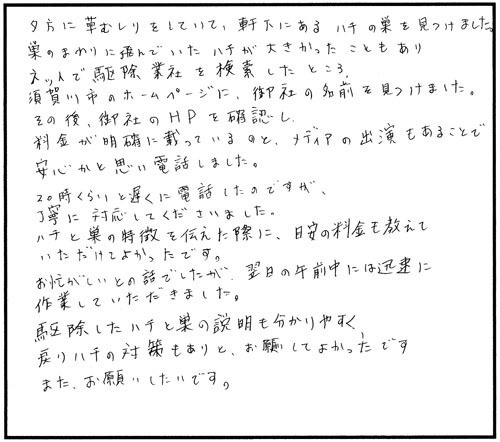 夕方に草むしりをしていて、軒下にあるハチの巣を見つけました。
巣のまわりに飛んでいたハチが大きかったこともあり
ネットで駆除業社を検索したところ、
須賀川市のホームページに、御社の名前を見つけました。
その後、御社のHPを確認し、
料金が明確に載っているのと、メディアの出演もあることで
安心かと思い電話しました。
20時くらいと遅くに電話したのですが、
丁寧に対応してくださいました。
ハチと巣の特徴を伝えた際に、目安の料金も教えて
いただけてよかったです。
お忙がしいとの話でしたが、翌日の午前中には迅速に
作業していただきました。
駆除したハチと巣の説明も分かりやすく、
戻りハチの対策もありと、お願してよかったです
また、お願いしたいです。